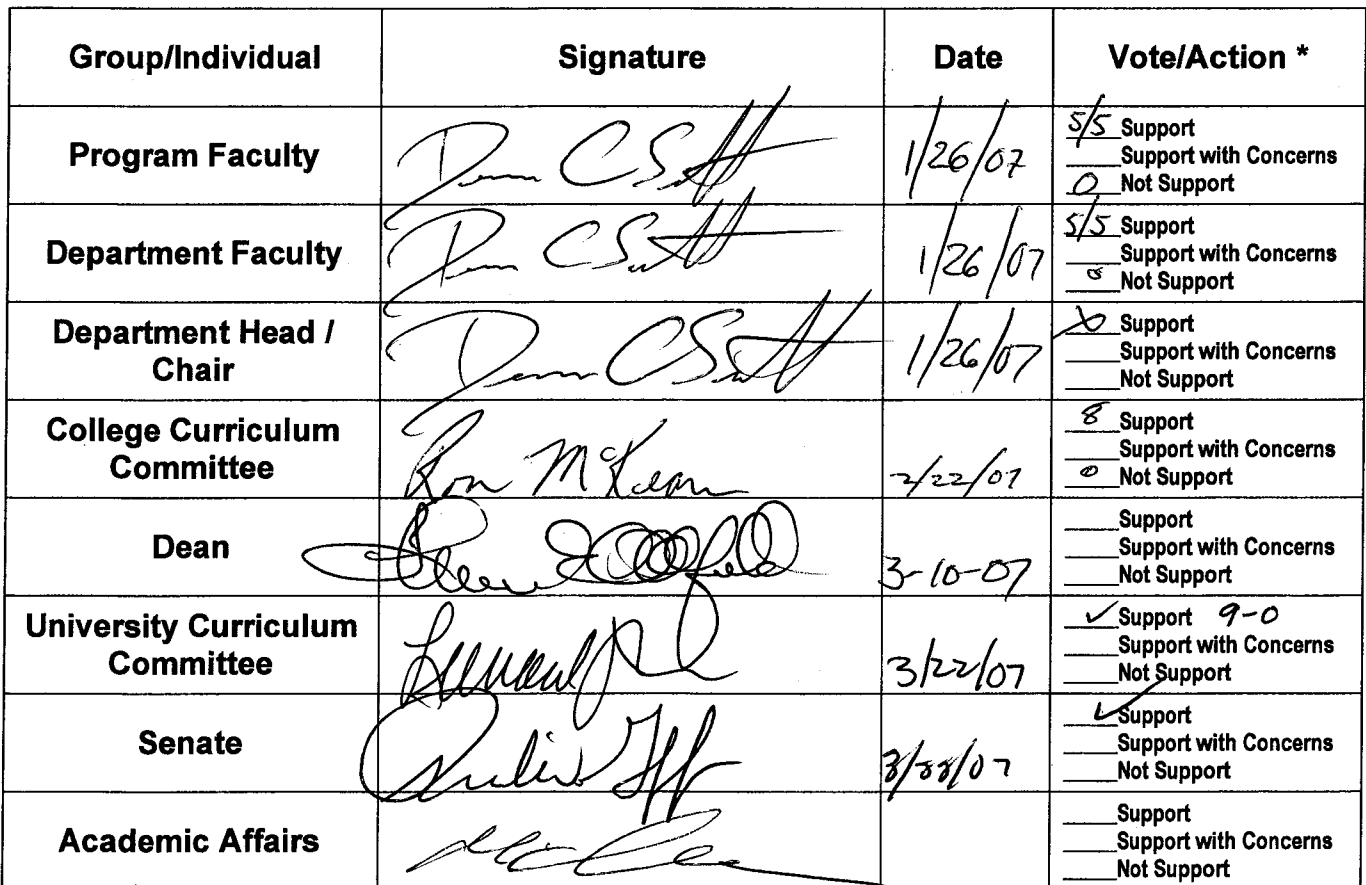 Group/Individual Signature Date Vote/Action *
Program Faculty 1/26/07
5/5 Support
____Support with Concerns
0 Not Support
Department Faculty 1/26/07
5/5 Support
____Support with Concerns
0 Not Support
Department Head /
Chair
1/26/07
X Support
____Support with Concerns
____Not Support
College Curriculum
Committee
Ron McKean 2/22/07
8 Support
____Support with Concerns
0 Not Support
Dean 3-10-07
____Support
____Support with Concerns
____Not Support
University Curriculum
Committee
3/22/07
✓ Support 9-0
____Support with Concerns
____Not Support
Senate
✓ Support
____Support with Concerns
____Not Support
Academic Affairs
____Support
____Support with Concerns
____Not Support